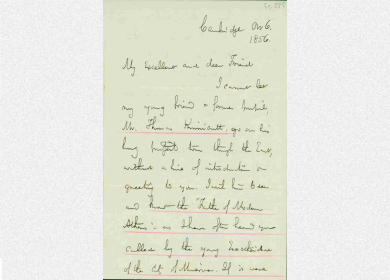 Cambridge Nov 6.
1856.
My Excellent and dear Friend
I cannot let
my young friend & former pupil,
Mr. Thomas Kinnicutt, go on his
long tour through the East,
without a line of introduction or
greeting to you. I wish him to see
and the "Father of Modern
Athens": as I have often heard you
called by the young
of the City of Minerva. It is